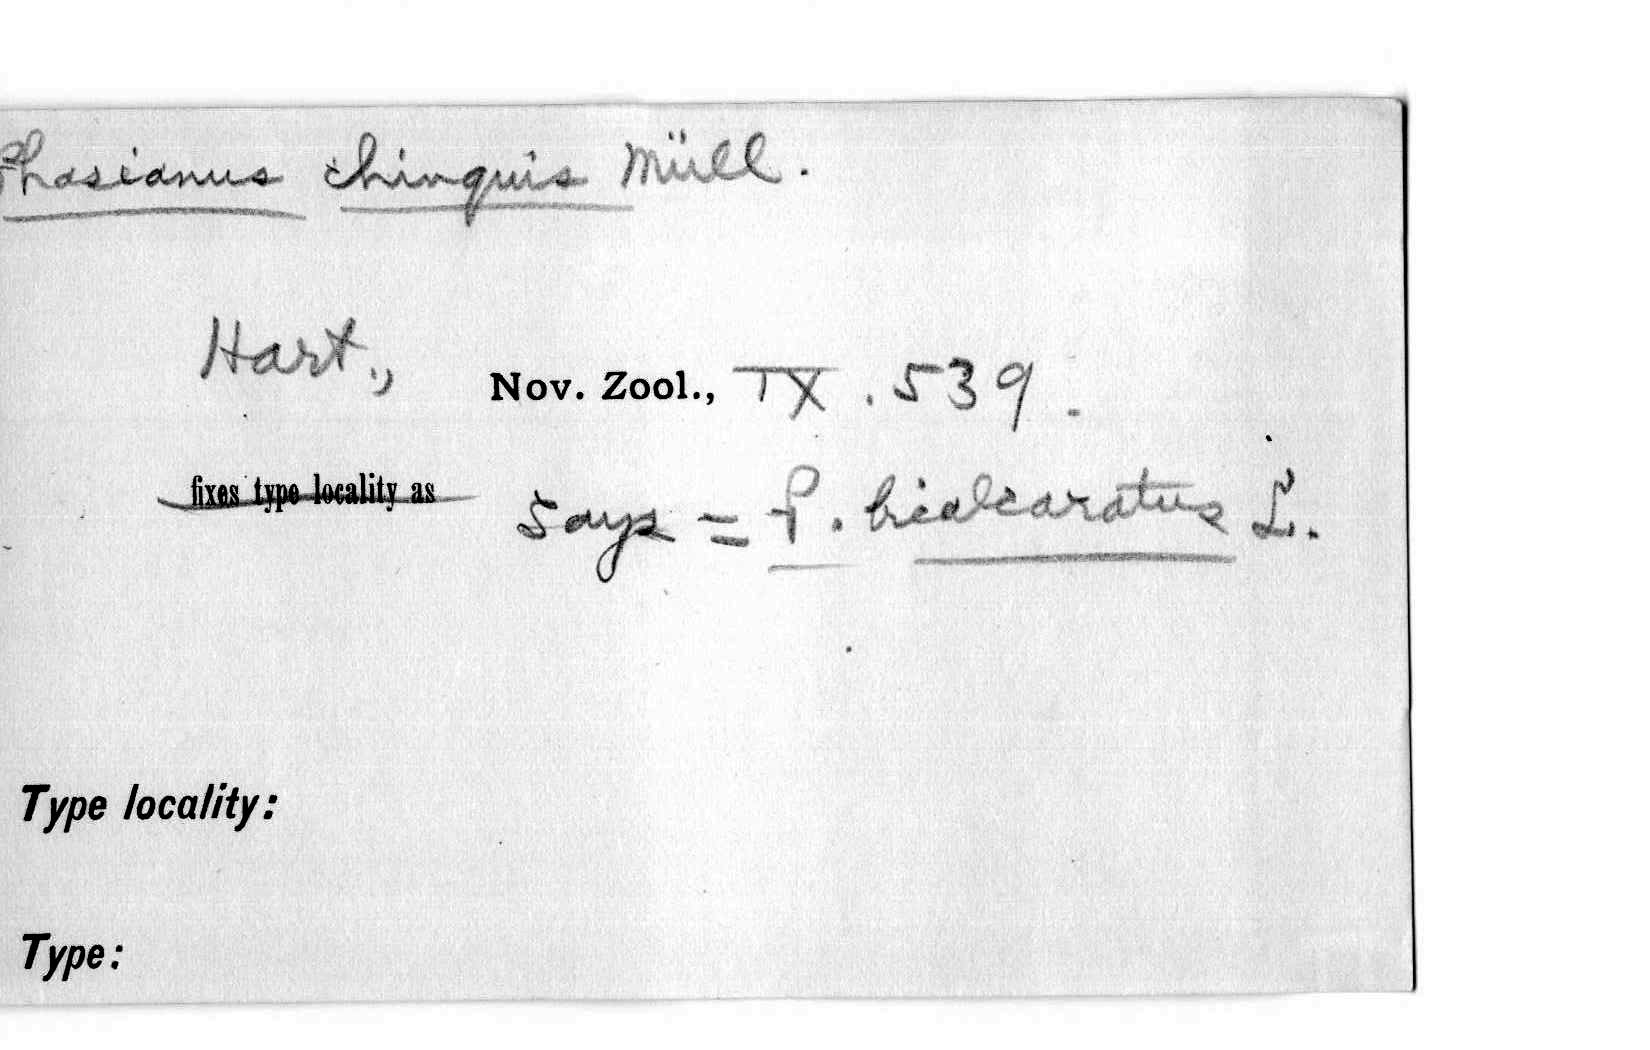 Phasianus chinquis Müll.
Hart., Nov. Zool., IX. 539.
fixes type locality as says = P. bicalcaratus L.
Type locality:
Type: